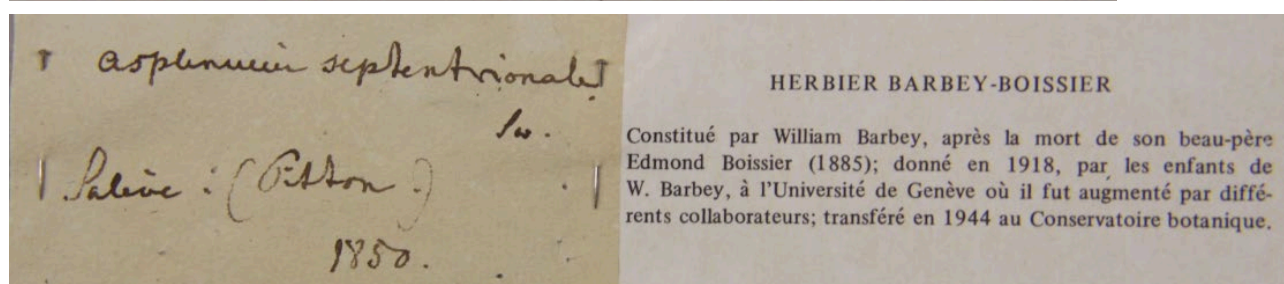 asplenium septentrionale
Sw.
Salève : (Pitton.)
1850.
HERBIER BARBEY-BOISSIER
Constitué par William Barbey, après la mort de son beau-père
Edmond Boissier (1885); donné en 1918, par les enfants de
W. Barbey, à l'Université de Genève où il fut augmenté par diffé-
rents collaborateurs; transféré en 1944 au Conservatoire botanique.